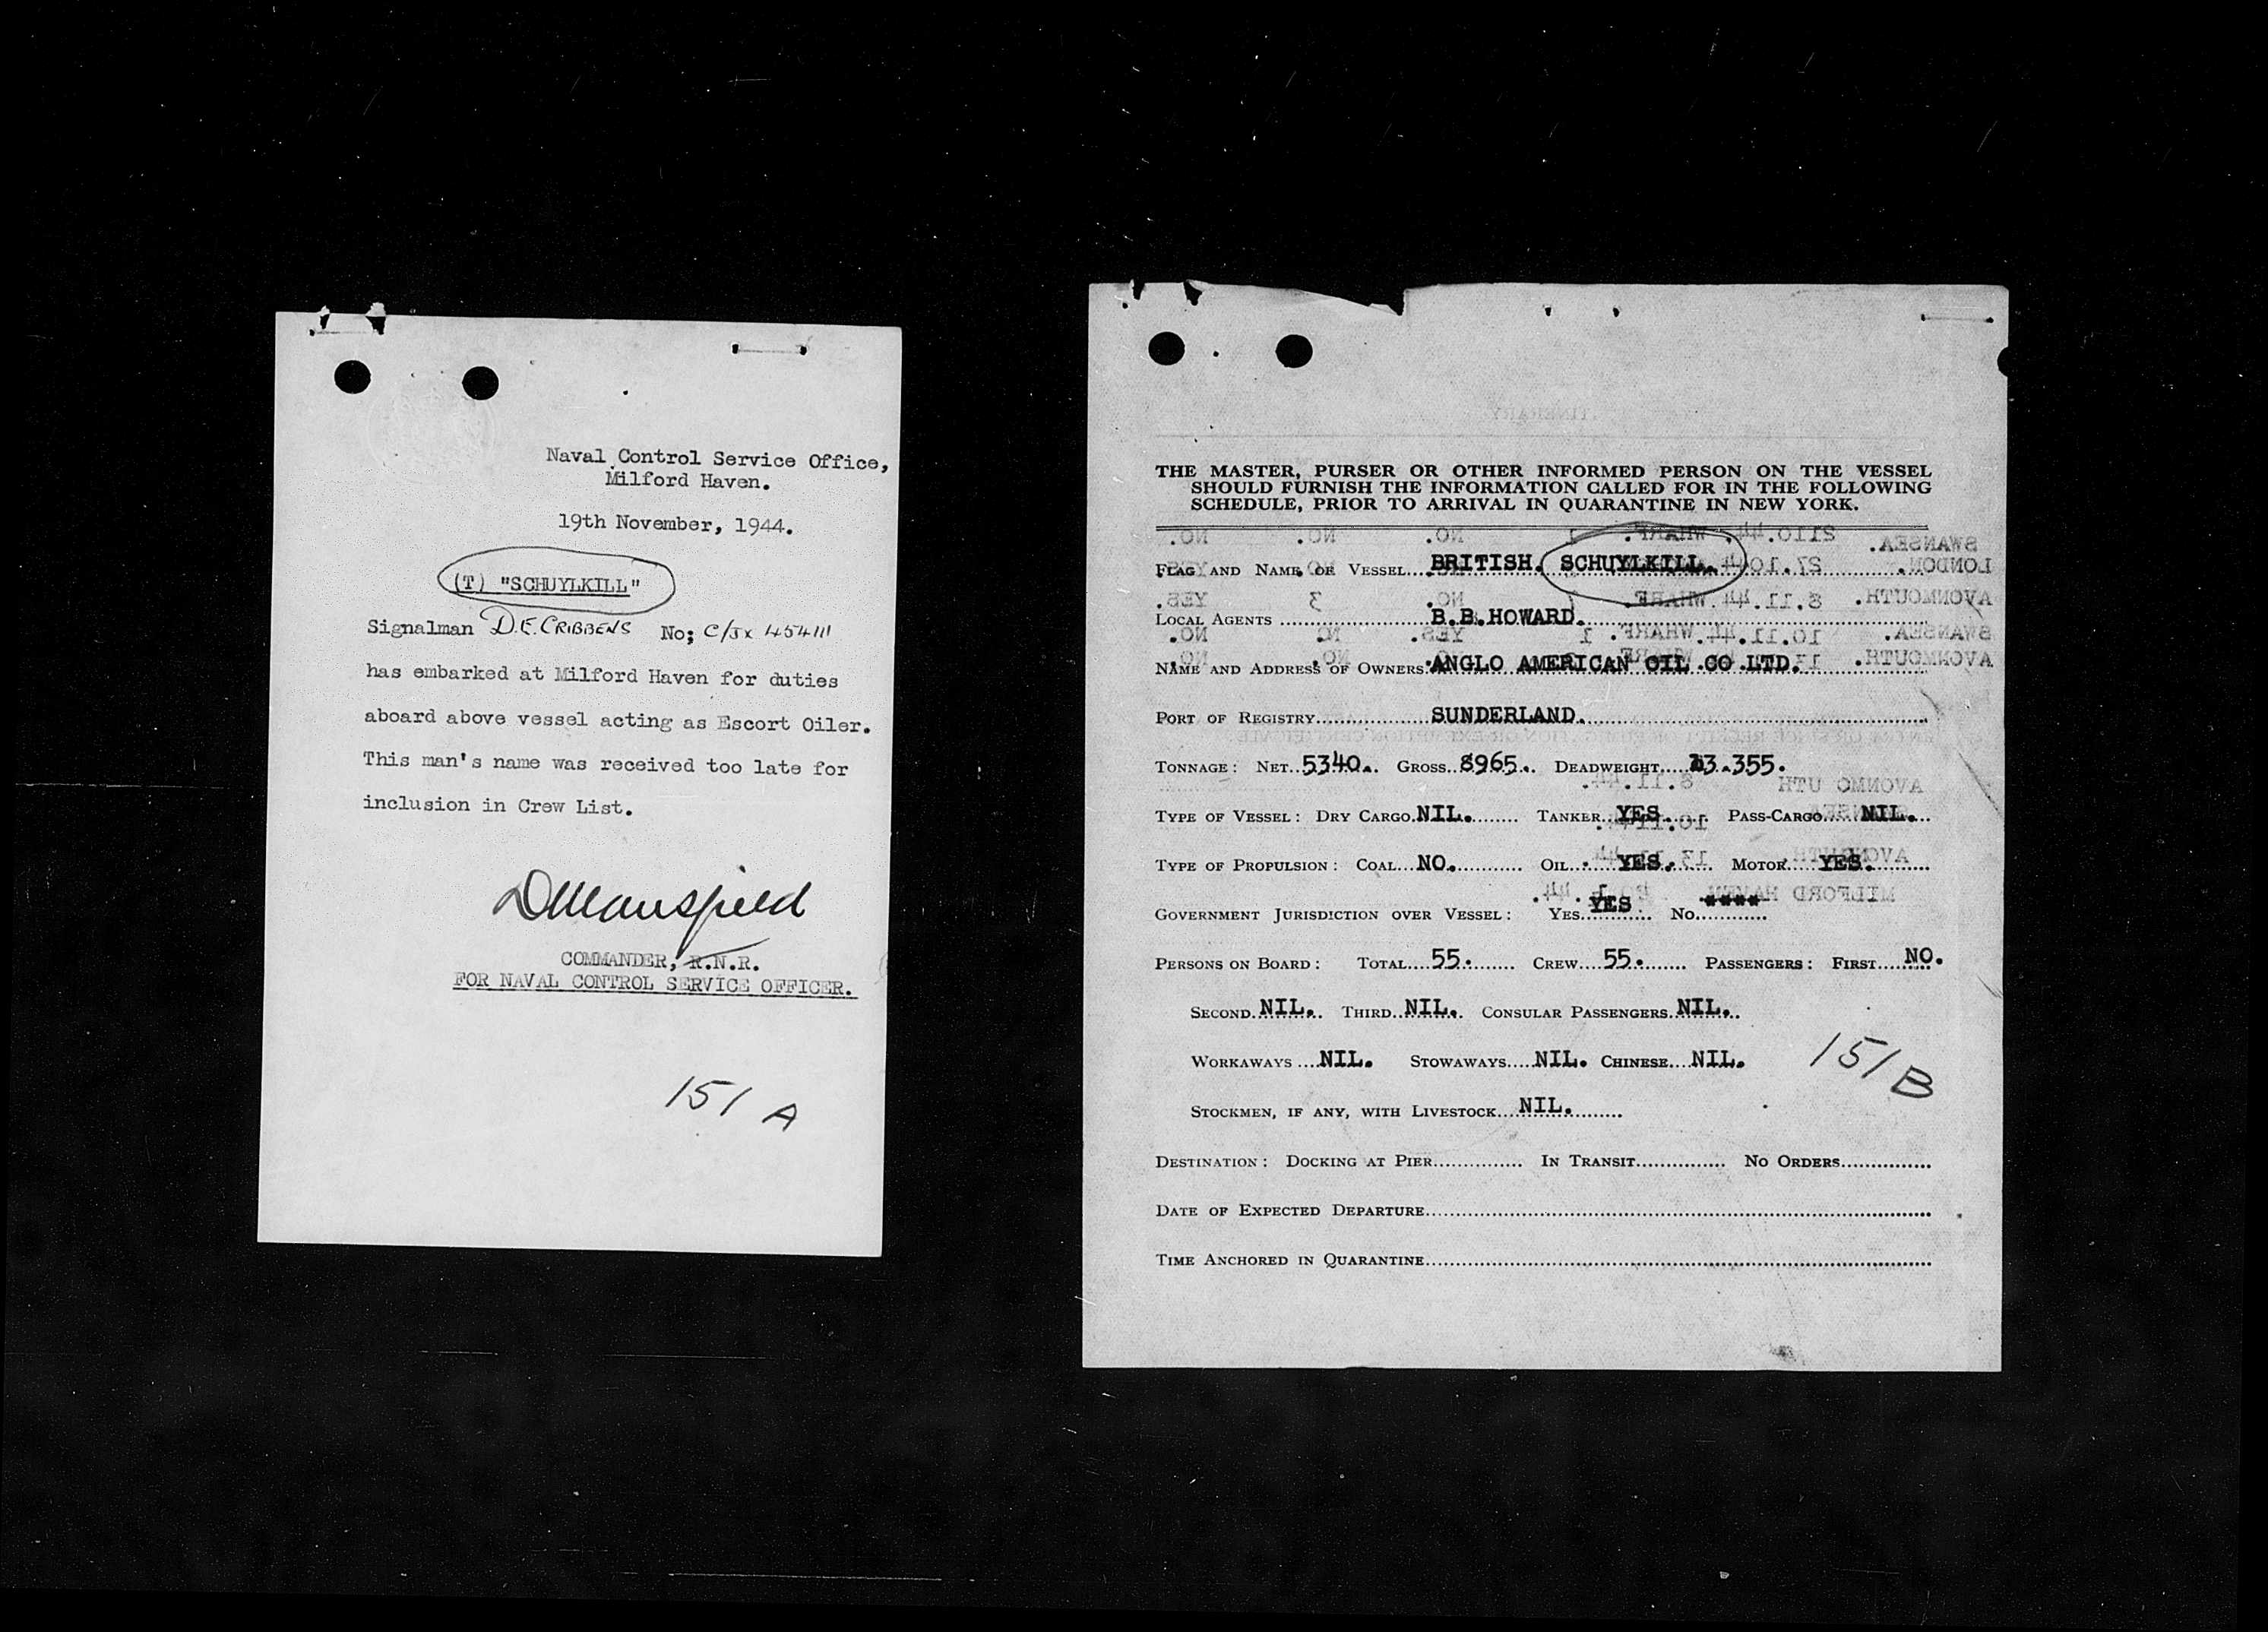 Naval Control Service Office,
Milford Haven.
19th November, 1944.
(T) "SCHUYLKILL"
Signalman D.E. CRIBBENS No; C/JX 454111
has embarked at Milford Haven for duties
aboard above vessel acting as Escort Oiler.
This man's name was received too late for
inclusion in Crew List.
DMansfield
COMMANDER, R.N.R.
FOR NAVAL CONTROL SERVICE OFFICER.
151 A
THE MASTER, PURSER OR OTHER INFORMED PERSON ON THE VESSEL
SHOULD FURNISH THE INFORMATION CALLED FOR IN THE FOLLOWING
SCHEDULE, PRIOR TO ARRIVAL IN QUARANTINE IN NEW YORK.
FLAG AND NAME OF VESSEL BRITISH. SCHUYLKILL.
LOCAL AGENTS B.B.HOWARD.
NAME AND ADDRESS OF OWNERS ANGLO AMERICAN OIL CO LTD.
PORT OF REGISTRY SUNDERLAND.
TONNAGE: NET 5340. GROSS 8965. DEADWEIGHT 13.355.
TYPE OF VESSEL: DRY CARGO NIL. TANKER YES. PASS-CARGO NIL.
TYPE OF PROPULSION: COAL NO. OIL YES. MOTOR YES.
GOVERNMENT JURISDICTION OVER VESSEL: YES YES NO ****
PERSONS ON BOARD: TOTAL 55. CREW 55. PASSENGERS: FIRST NO.
SECOND NIL. THIRD NIL. CONSULAR PASSENGERS NIL.
WORKAWAYS NIL. STOWAWAYS NIL. CHINESE NIL.
STOCKMEN, IF ANY, WITH LIVESTOCK NIL.
151 B
DESTINATION: DOCKING AT PIER IN TRANSIT NO ORDERS
DATE OF EXPECTED DEPARTURE
TIME ANCHORED IN QUARANTINE